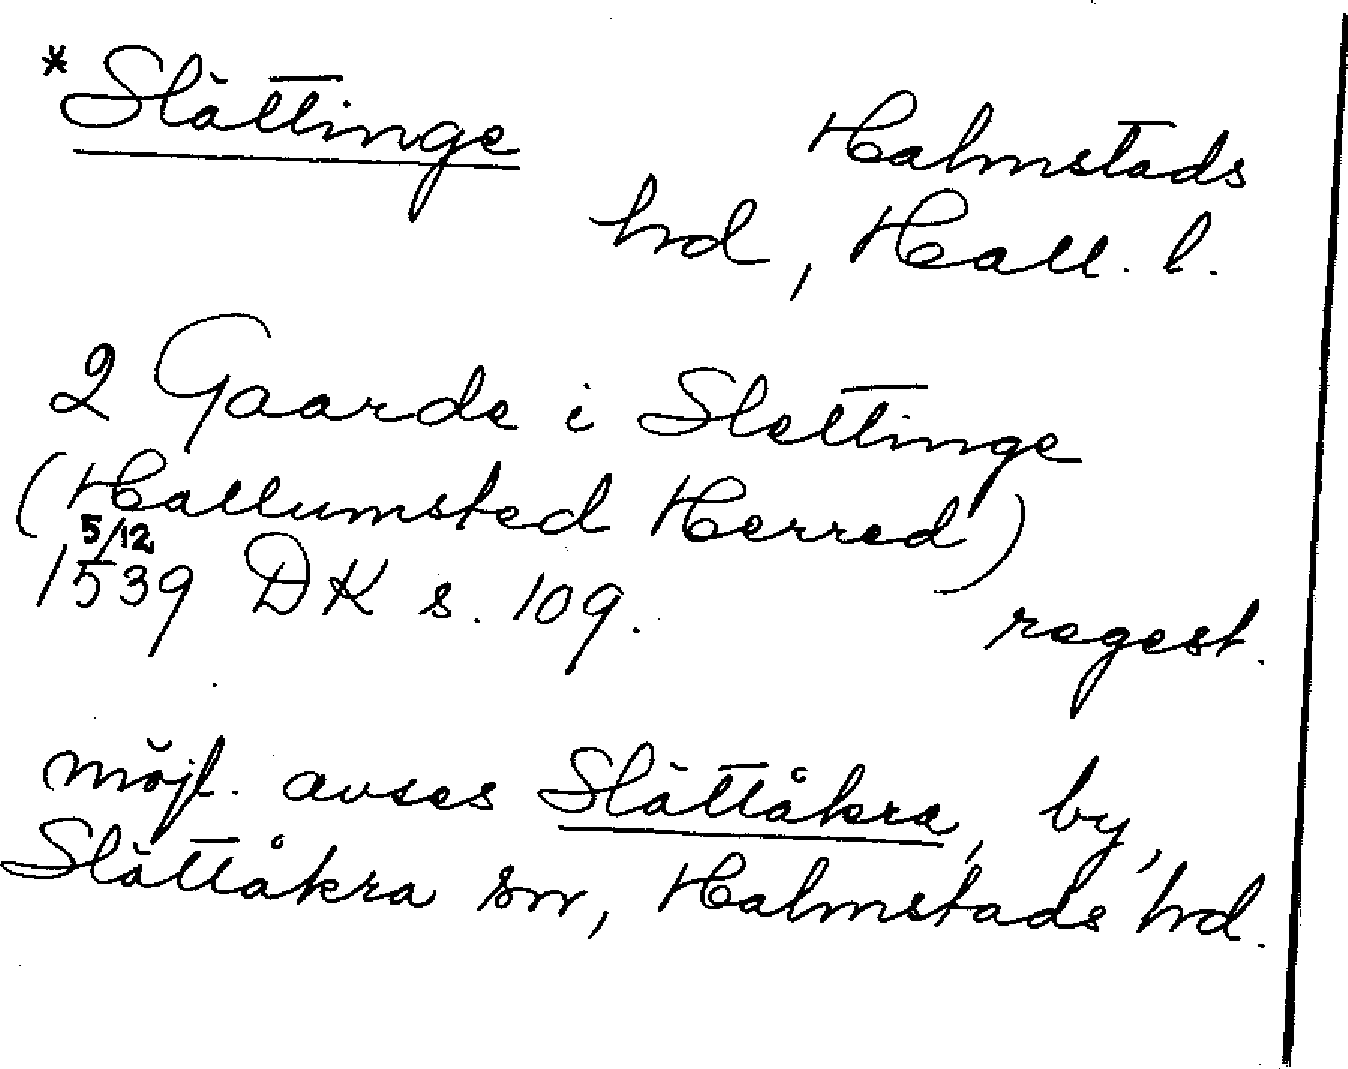 *Slättinge Halmstads
hrd, Hall. l.
2 Gaarde i Slettinge
(Hallumsted Herred)
5/12
1539 DK s. 109. regest.
möjl. avses Slättåkra, by,
Slättåkra sn, Halmstads hrd.